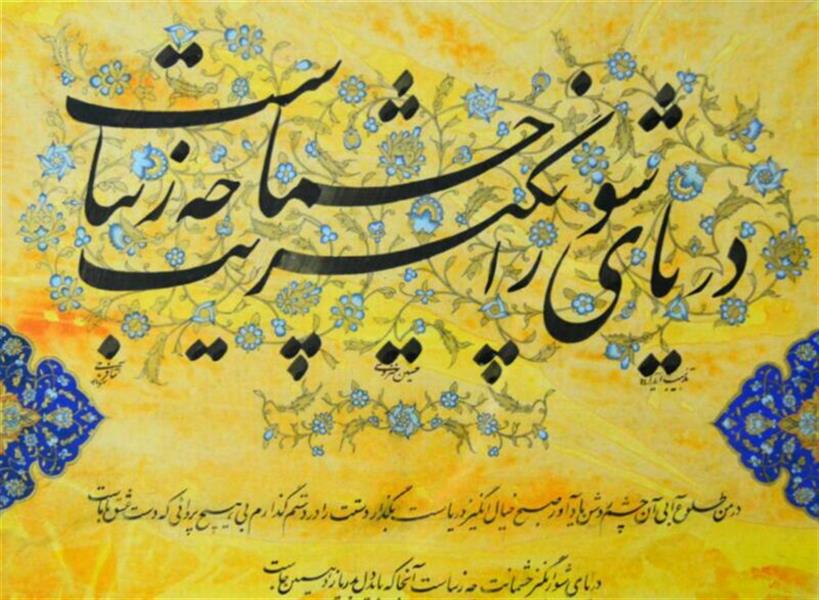 دریای شورانگیز چشمانت چه زیباست
حسین خسروی
در من طلوع آبی آن چشم روشن یادآور صبح خیال انگیز دریاست بگذار دستت را در دستم گذارم بی هیچ پروائی که دست عشق با ماست
دریای شورانگیز چشمانت چه زیباست آنجا که باید دل به دریا زد همین جاست